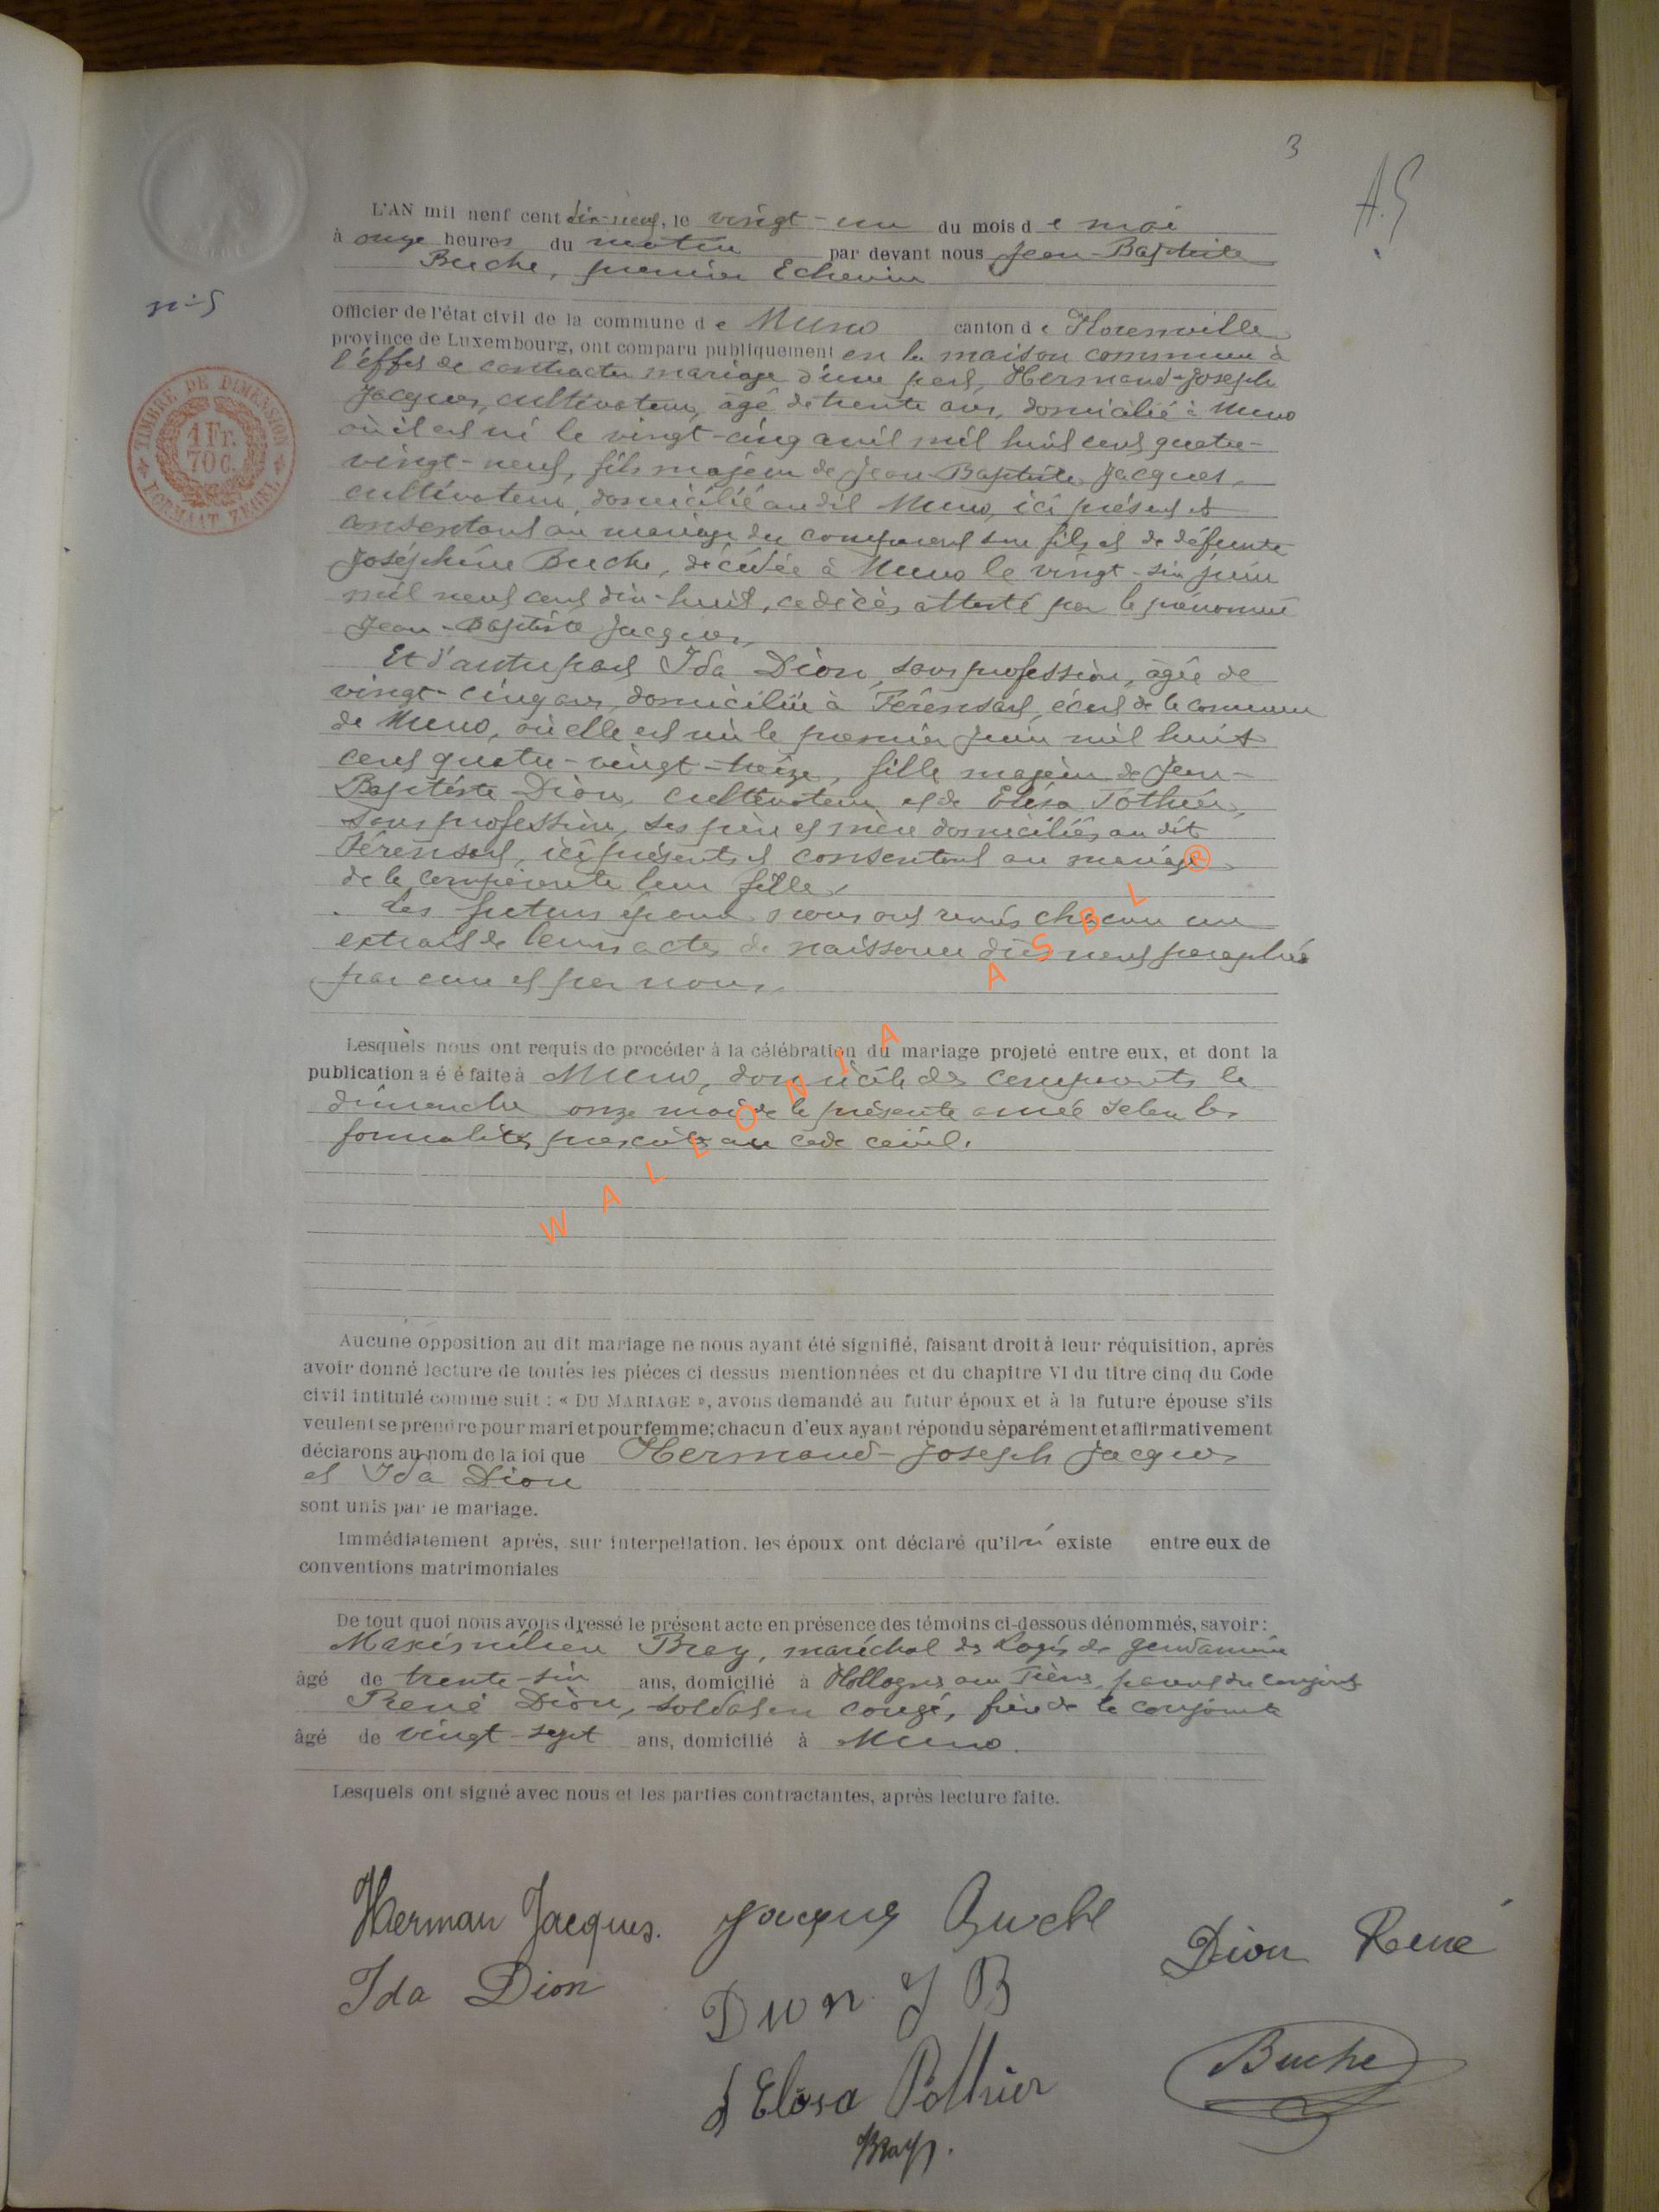 3
A.S
L'AN mil neuf cent dix-neuf, le vingt-un du mois de mai
à onze heures du matin par devant nous Jean-Baptiste
Buche, premier Echevin
n°5
Officier de l'état civil de la commune de Muno canton de Florenville
province de Luxembourg, ont comparu publiquement en la maison commune à
l'effet de contracter mariage d'une part, Hermand-Joseph
Jacques, cultivateur, âgé de trente ans, domicilié à Muno
où il est né le vingt-cinq avril mil huit cent quatre-
vingt-neuf, fils majeur de Jean-Baptiste Jacques,
cultivateur, domicilié au dit Muno, ici présent et
consentant au mariage du comparant son fils et de défunte
Joséphine Buche, décédée à Muno le vingt-six juin
mil neuf cent dix-huit, ce décès attesté par le prénommé
Jean-Baptiste Jacques,
Et d'autre part Ida Dion, sans profession, âgée de
vingt-cinq ans, domiciliée à Férensart, écart de la commune
de Muno, où elle est née le premier juin mil huit
cent quatre-vingt-treize, fille majeure de Jean-
Baptiste Dion, cultivateur et de Elisa Pothier,
sans profession, ses père et mère domiciliés au dit
Férensart, ici présents et consentant au mariage
de la comparante leur fille,
Les futurs époux nous ont remis chacun un
extrait de leurs actes de naissance paraphés
par eux et par nous,
TIMBRE DE DIMENSION
1 Fr.
70 C.
FORMAAT ZEGEL
Lesquels nous ont requis de procéder à la célébration du mariage projeté entre eux, et dont la
publication a é é faite à Muno, domicile des comparants le
dimanche onze mai de la présente année selon les
formalités prescrites au code civil.
WALLONIA ASBL ®
Aucune opposition au dit mariage ne nous ayant été signifié, faisant droit à leur réquisition, après
avoir donné lecture de toutes les pièces ci dessus mentionnées et du chapitre VI du titre cinq du Code
civil intitulé comme suit : « DU MARIAGE », avons demandé au futur époux et à la future épouse s'ils
veulent se prendre pour mari et pour femme; chacun d'eux ayant répondu séparément et affirmativement
déclarons au nom de la loi que Hermand-Joseph Jacques
et Ida Dion
sont unis par le mariage.
Immédiatement après, sur interpellation, les époux ont déclaré qu'il n'existe entre eux de
conventions matrimoniales
De tout quoi nous avons dressé le présent acte en présence des témoins ci-dessous dénommés, savoir :
Maximilien Bray, maréchal des Logis de gendarmerie
âgé de trente-six ans, domicilié à Hollogne aux Pierres, parent du conjoint
René Dion, soldat en congé, frère de la conjointe
âgé de vingt-sept ans, domicilié à Muno.
Lesquels ont signé avec nous et les parties contractantes, après lecture faite.
Herman Jacques. Jacques Buche Dion René
Ida Dion Dion J B
Elisa Pothier Buche
Bray.